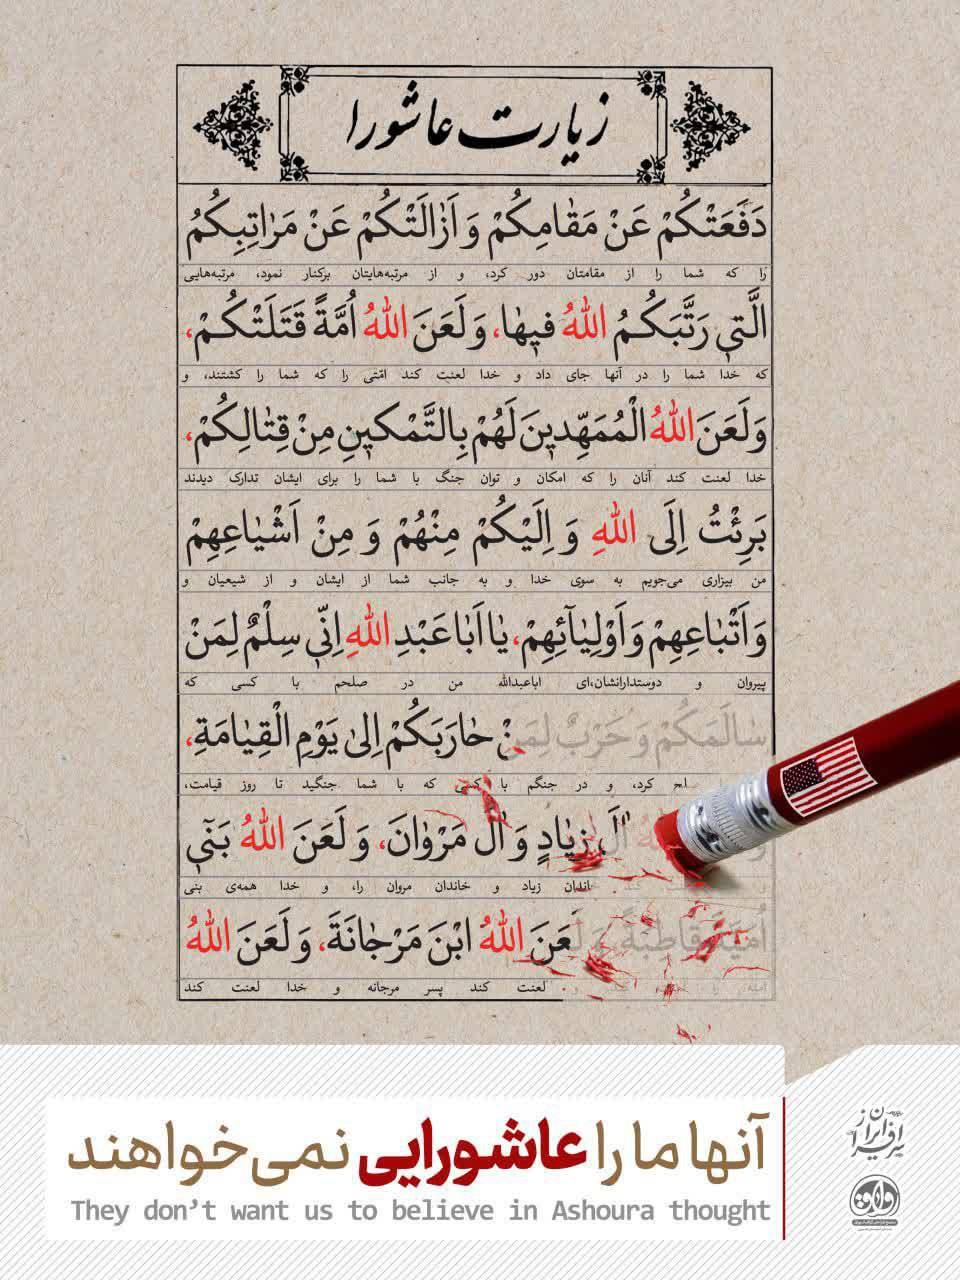 زيارت عاشورا
دَفَعَتْكُمْ عَنْ مَقٰامِكُمْ وَ اَزٰالَتْكُمْ عَنْ مَرٰاتِبِكُمُ
را که شما را از مقامتان دور کرد، و از مرتبه‌هایتان برکنار نمود، مرتبه‌هایی
الَّتي رَتَّبَكُمُ اللهُ فيهٰا، وَ لَعَنَ اللهُ اُمَّةً قَتَلَتْكُمْ،
که خدا شما را در آنها جای داد و خدا لعنت کند امّتی را که شما را کشتند، و
وَ لَعَنَ اللهُ الْمُمَهِّدينَ لَهُمْ بِالتَّمْكينِ مِنْ قِتٰالِكُمْ،
خدا لعنت کند آنان را که امکان و توان جنگ با شما را برای ایشان تدارک دیدند
بَرِئْتُ اِلَى اللهِ وَ اِلَيْكُمْ مِنْهُمْ وَ مِنْ اَشْيٰاعِهِمْ
من بیزاری می‌جویم به سوی خدا و به جانب شما از ایشان و از شیعیان و
وَ اَتْبٰاعِهِمْ وَ اَوْلِيٰآئِهِمْ، يٰا اَبٰا عَبْدِ اللهِ اِنّي سِلْمٌ لِمَنْ
پیروان و دوستدارانشان،ای اباعبدالله من در صلحم با کسی که
سٰالَمَكُمْ وَ حَرْبٌ لِمَنْ حٰارَبَكُمْ اِلىٰ يَوْمِ الْقِيٰامَةِ،
کرد، و در جنگم با کسی که با شما جنگید تا روز قیامت،
آلَ زِيٰادٍ وَ آلَ مَرْوٰانَ، وَ لَعَنَ اللهُ بَنٓي
خاندان زیاد و خاندان مروان را، و خدا همه‌ی بنی
اُمَيَّةَ قٰاطِبَةً وَ لَعَنَ اللهُ ابْنَ مَرْجٰانَةَ، وَ لَعَنَ اللهُ
لعنت کند پسر مرجانه و خدا لعنت کند
آنها ما را عاشورایی نمی‌خواهند
They don't want us to believe in Ashoura thought